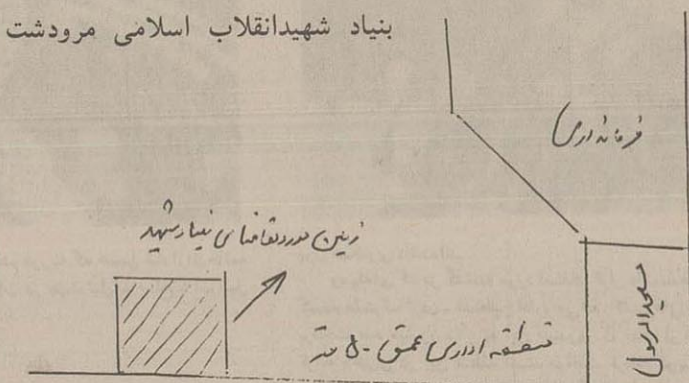 بنیاد شهیدانقلاب اسلامی مرودشت
فرمانداری
زمین مورد تقاضای بنیاد شهید
منطقه اداری عمق ۵۰ متر
مسجدالرسول